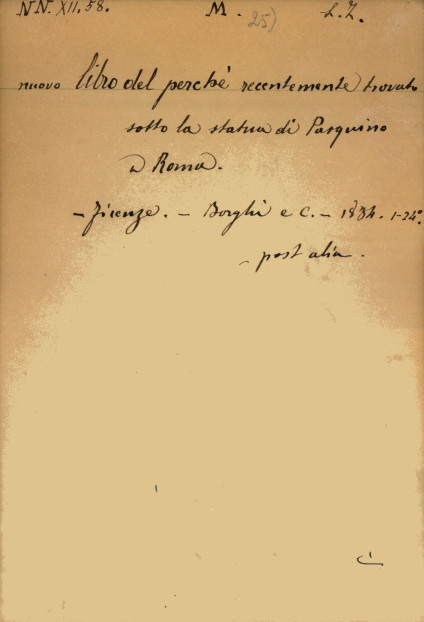 NN. XII. 58. M. 25) L. Z.
nuovo libro del perchè recentemente trovato
sotto la statua di Pasquino
a Roma.
- Firenze. - Borghi e C. - 1834. 1-24°.
- post alia.